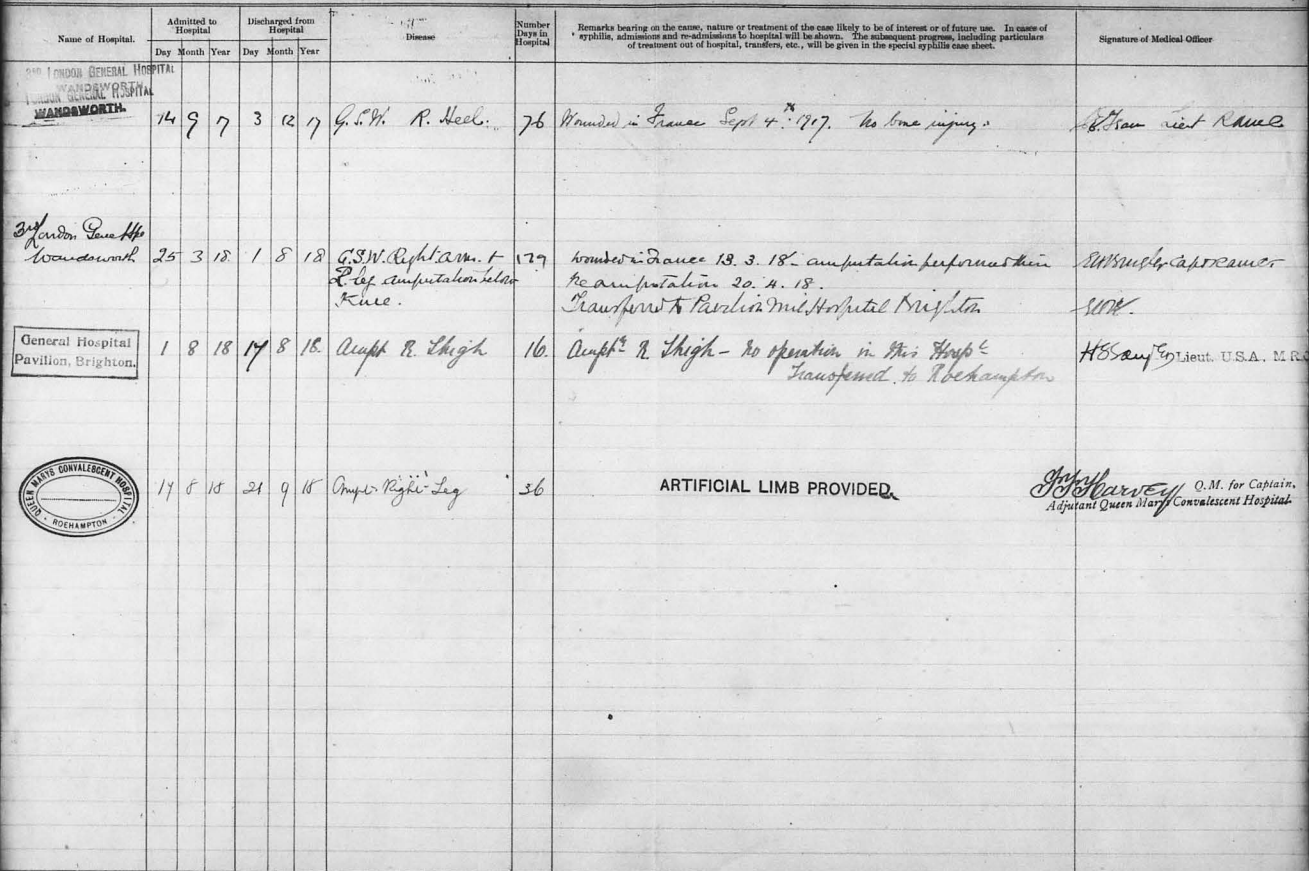 Name of Hospital.
Admitted to Hospital
Day Month Year
Discharged from Hospital
Day Month Year
Disease
Number Days in Hospital
Remarks bearing on the cause, nature or treatment of the case likely to be of interest or of future use. In cases of
syphilis, admissions and re-admissions to hospital will be shown. The subsequent progress, including particulars
of treatment out of hospital, transfers, etc., will be given in the special syphilis case sheet.
Signature of Medical Officer
3RD LONDON GENERAL HOSPITAL
WANDSWORTH
LONDON GENERAL HOSPITAL
WANDSWORTH.
14 9 7 3 12 17 G.S.W. R. Heel. 76 Wounded in France Sept 4th 1917. No bone injury. Lieut RAMC
3rd London Gene Hps
Wandsworth 25 3 18 1 8 18 G.S.W. Right arm. + 129 Wounded in France 13. 3. 18 - amputation performed
R. leg amputation below Reamputation 20. 4. 18.
Knee. Transferred to Pavilion Mil Hospital Brighton
General Hospital
Pavilion, Brighton.
1 8 18 17 8 18 Ampt R. Thigh 16. Amptn R Thigh - No operation in this Hospl Lieut. U.S.A. M.R.C
Transferred to Roehampton
QUEEN MARYS CONVALESCENT HOSPITAL
ROEHAMPTON
17 8 18 21 9 18 Ampt Right Leg 36 ARTIFICIAL LIMB PROVIDED. Harvey Q.M. for Captain,
Adjutant Queen Marys Convalescent Hospital